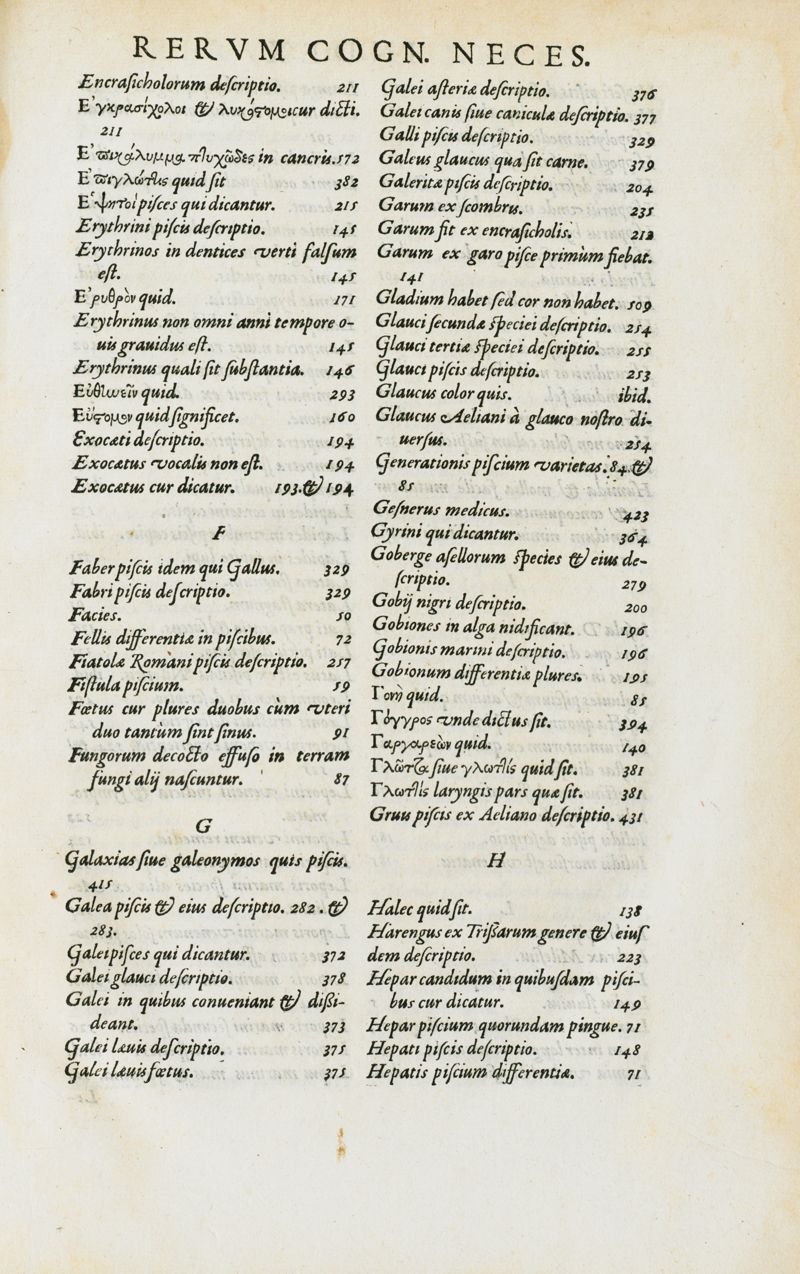 RERVM COGN. NECES.
Encraſicholorum deſcriptio. 211
Ἐγκρασίχολοι & λυκόστομοι cur dicti.
211
Ἐπικάλυμμα πτυχῶδες in cancris. 172
Ἐπιγλωτὶς quid ſit 382
Ἑψητοὶ piſces qui dicantur. 215
Erythrini piſcis deſcriptio. 145
Erythrinos in dentices verti falſum
eſt. 145
Ἐρυθρὸν quid. 171
Erythrinus non omni anni tempore o-
uis grauidus eſt. 145
Erythrinus quali ſit ſubſtantia. 146
Εὐθυωεῖν quid. 293
Εὔστομον quid ſignificet. 160
Exocæti deſcriptio. 194
Exocætus vocalis non eſt. 194
Exocætus cur dicatur. 193. & 194
F
Faber piſcis idem qui Gallus. 329
Fabri piſcis deſcriptio. 329
Facies. 50
Fellis differentiæ in piſcibus. 72
Fiatolæ Romàni piſcis deſcriptio. 257
Fiſtula piſcium. 59
Fœtus cur plures duobus cùm vteri
duo tantùm ſint ſinus. 91
Fungorum decocto effuſo in terram
fungi alij naſcuntur. 87
G
Galaxias ſiue galeonymos quis piſcis.
415
Galea piſcis & eius deſcriptio. 282. &
283.
Galei piſces qui dicantur. 372
Galei glauci deſcriptio. 378
Galei in quibus conueniant & diſsi-
deant. 373
Galei læuis deſcriptio. 375
Galei læuis fœtus. 375
Galei aſteriæ deſcriptio. 376
Galei canis ſiue caniculæ deſcriptio. 377
Galli piſcis deſcriptio. 329
Galeus glaucus qua ſit carne. 379
Galeritæ piſcis deſcriptio. 204
Garum ex ſcombris. 235
Garum fit ex encraſicholis. 212
Garum ex garo piſce primùm fiebat.
141
Gladium habet ſed cor non habet. 509
Glauci ſecundæ ſpeciei deſcriptio. 254
Glauci tertiæ ſpeciei deſcriptio. 255
Glauci piſcis deſcriptio. 253
Glaucus color quis. ibid.
Glaucus Aeliani à glauco noſtro di-
uerſus. 254
Generationis piſcium varietas. 84. &
85
Geſnerus medicus. 423
Gyrini qui dicantur. 364
Goberge aſellorum ſpecies & eius de-
ſcriptio. 279
Gobij nigri deſcriptio. 200
Gobiones in alga nidificant. 196
Gobionis marini deſcriptio. 196
Gobionum differentiæ plures. 195
Γονὴ quid. 85
Γόγγρος vnde dictus ſit. 394
Γαργαρεὼν quid. 140
Γλῶττα ſiue γλωττὶς quid ſit. 381
Γλωττὶς laryngis pars quæ ſit. 381
Gruis piſcis ex Aeliano deſcriptio. 431
H
Halec quid ſit. 138
Harengus ex Triſſarum genere & eiuſ
dem deſcriptio. 223
Hepar candidum in quibuſdam piſci-
bus cur dicatur. 149
Hepar piſcium quorundam pingue. 71
Hepati piſcis deſcriptio. 148
Hepatis piſcium differentiæ. 71